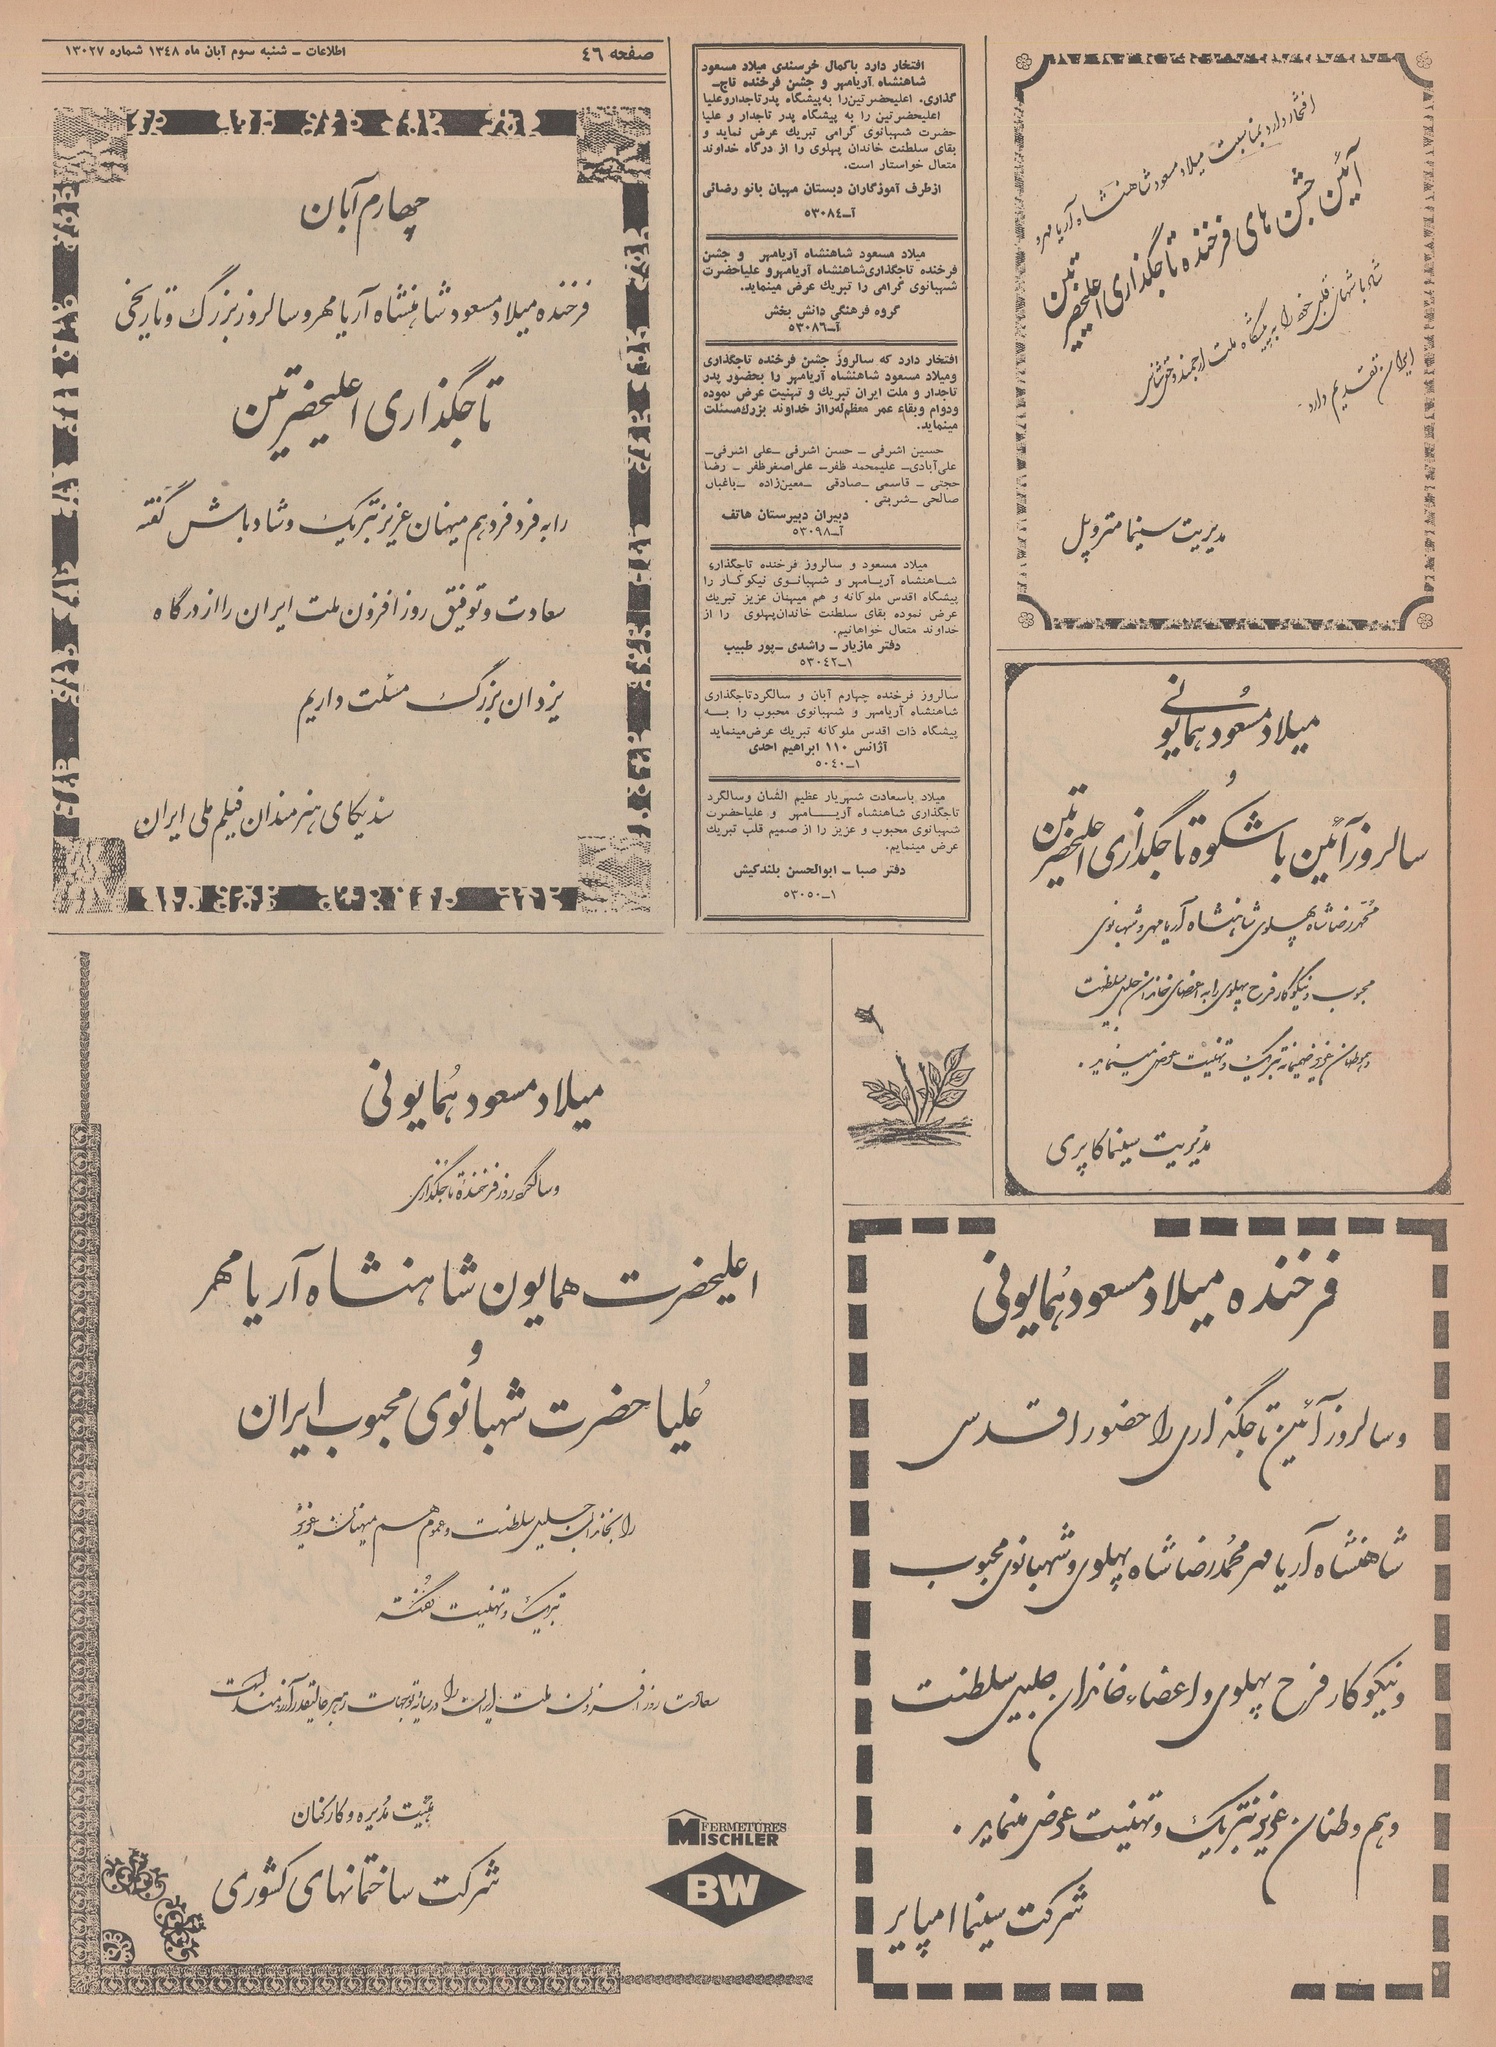 صفحه ٤٦
اطلاعات ــ شنبه سوم آبان ماه ١٣٤٨ شماره ١٣٠٢٧
افتخار دارد بمناسبت میلاد مسعود شاهنشاه آریامهر و
آئین جشن های فرخنده تاجگذاری اعلیحضرتین
شادباشهای قلبی خود را به پیشگاه ملت ارجمند و
ایران تقدیم دارد.
مدیریت سینما متروپل
میلاد مسعود همایونی
و
سالروز آئین باشکوه تاجگذاری اعلیحضرتین
محمدرضا شاه پهلوی شاهنشاه آریامهر و شهبانوی
محبوب و نیکوکار فرح پهلوی را به اعضای خاندان جلیل سلطنت
و هموطنان عزیز صمیمانه تبریک و تهنیت عرض مینماید.
مدیریت سینما کاپری
فرخنده میلاد مسعود همایونی
و سالروز آئین تاجگذاری را حضور اقدس
شاهنشاه آریامهر محمدرضا شاه پهلوی و شهبانوی محبوب
و نیکوکار فرح پهلوی و اعضاء خاندان جلیل سلطنت
و هم وطنان عزیز تبریک و تهنیت عرض مینماید.
شرکت سینما امپایر
افتخار دارد باکمال خرسندی میلاد مسعود
شاهنشاه آریامهر و جشن فرخنده تاج‌ـ
گذاری. اعلیحضرتین را به پیشگاه پدر تاجدار و علیا
اعلیحضرتین را به پیشگاه پدر تاجدار و علیا
حضرت شهبانوی گرامی تبریک عرض نماید و
بقای سلطنت خاندان پهلوی را از درگاه خداوند
متعال خواستار است.
ازطرف آموزگاران دبستان مهبان بانو رضائی
آـ٥٣٠٨٤
میلاد مسعود شاهنشاه آریامهر و جشن
فرخنده تاجگذاری شاهنشاه آریامهر و علیاحضرت
شهبانوی گرامی را تبریک عرض مینماید.
گروه فرهنگی دانش بخش
آـ٥٣٠٨٦
افتخار دارد که سالروز جشن فرخنده تاجگذاری
ومیلاد مسعود شاهنشاه آریامهر را بحضور پدر
تاجدار و ملت ایران تبریک و تهنیت عرض نموده
ودوام وبقاء عمر معظم‌له رااز خداوند بزرگ مسئلت
مینماید.
حسین اشرفی ـ حسن اشرفی ـ علی اشرفی‌ـ
علی‌آبادی‌ـ علیمحمد ظفر‌ـ علی‌اصغر ظفر ـ رضا
حجتی ـ قاسمی ـ صادقی ـ معین‌زاده ـ باغبان
صالحی ـ شربتی .
دبیران دبیرستان هاتف
آـ٥٣٠٩٨
میلاد مسعود و سالروز فرخنده تاجگذاری
شاهنشاه آریامهر و شهبانوی نیکوکار را
پیشگاه اقدس ملوکانه و هم میهنان عزیز تبریک
عرض نموده بقای سلطنت خاندان پهلوی را از
خداوند متعال خواهانیم.
دفتر مازیار ـ راشدی ـ پور طبیب
١ـ٥٣٠٤٢
سالروز فرخنده چهارم آبان و سالگرد تاجگذاری
شاهنشاه آریامهر و شهبانوی محبوب را به
پیشگاه ذات اقدس ملوکانه تبریک عرض مینماید
آژانس ١١٠ ابراهیم احدی
١ـ٥٠٤٠
میلاد باسعادت شهریار عظیم الشان وسالگرد
تاجگذاری شاهنشاه آریامهر و علیاحضرت
شهبانوی محبوب و عزیز را از صمیم قلب تبریک
عرض مینمایم.
دفتر صبا ـ ابوالحسن بلندکیش
١ـ٥٣٠٥٠
چهارم آبان
فرخنده میلاد مسعود شاهنشاه آریامهر و سالروز بزرگ و تاریخی
تاجگذاری اعلیحضرتین
را به فرد فرد هم میهنان عزیز تبریک و شادباش گفته
سعادت و توفیق روزافزون ملت ایران را از درگاه
یزدان بزرگ مسئلت داریم
سندیکای هنرمندان فیلم ملی ایران
میلاد مسعود همایونی
و سالگرد روز فرخنده تاجگذاری
اعلیحضرت همایون شاهنشاه آریامهر
و
علیاحضرت شهبانوی محبوب ایران
را بخاندان جلیل سلطنت و عموم هم میهنان عزیز
تبریک و تهنیت گفته
سعادت روزافزون ملت ایران را در سایه توجهات رهبر عالیقدر آرزومند است
هیئت مدیره و کارکنان
شرکت ساختمانهای کشوری
FERMETURES
MISCHLER
BW